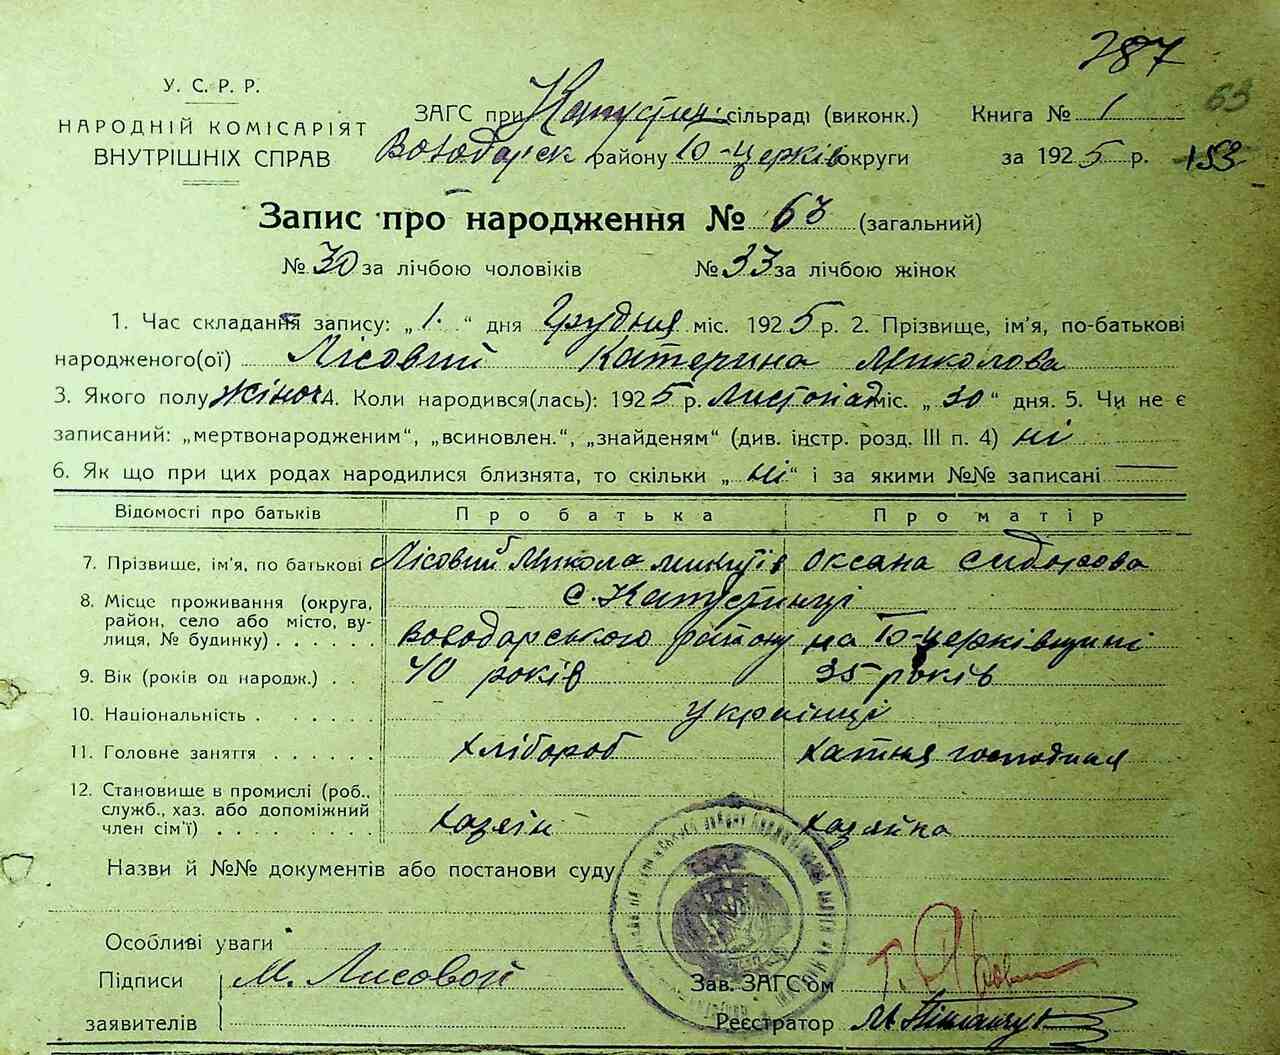 287
63
У. С. Р. Р.
НАРОДНІЙ КОМІСАРІЯТ
ВНУТРІШНІХ СПРАВ
ЗАГС при Капустин. сільраді (виконк.)
Володарск району Б-церків округи
Книга № 1
за 1925 р. 153
Запис про народження № 63 (загальний)
№ 30 за лічбою чоловіків № 33 за лічбою жінок
1. Час складання запису: „ 1. “ дня Грудня міс. 1925 р. 2. Прізвище, ім'я, по-батькові
народженого(ої) Лісовий Катерина Миколова
3. Якого полу жіноч. 4. Коли народився(лась): 1925 р. Листопад міс. „ 30 “ дня. 5. Чи не є
записаний: „мертвонародженим“, „всиновлен.“, „знайденям“ (див. інстр. розд. III п. 4) ні
6. Як що при цих родах народилися близнята, то скільки „ ні “ і за якими №№ записані —
Відомості про батьків Про батька Про матір
7. Прізвище, ім'я, по батькові Лісовий Микола Оксана Сидорова
8. Місце проживання (округа, с. Капустинці
район, село або місто, ву-
лиця, № будинку) . . . . . Володарського району на Б-церківщині
9. Вік (років од народж.) . . 40 років 35 років
10. Національність . . . . . . українці
11. Головне заняття . . . . . . хлібороб хатня господиня
12. Становище в промислі (роб.,
служб., хаз. або допоміжний
член сім'ї) . . . . . . . . хазяін хазяйка
Назви й №№ документів або постанови суду
Особливі уваги
Підписи М. Лисовой Зав. ЗАГС'ом
заявителів Реєстратор